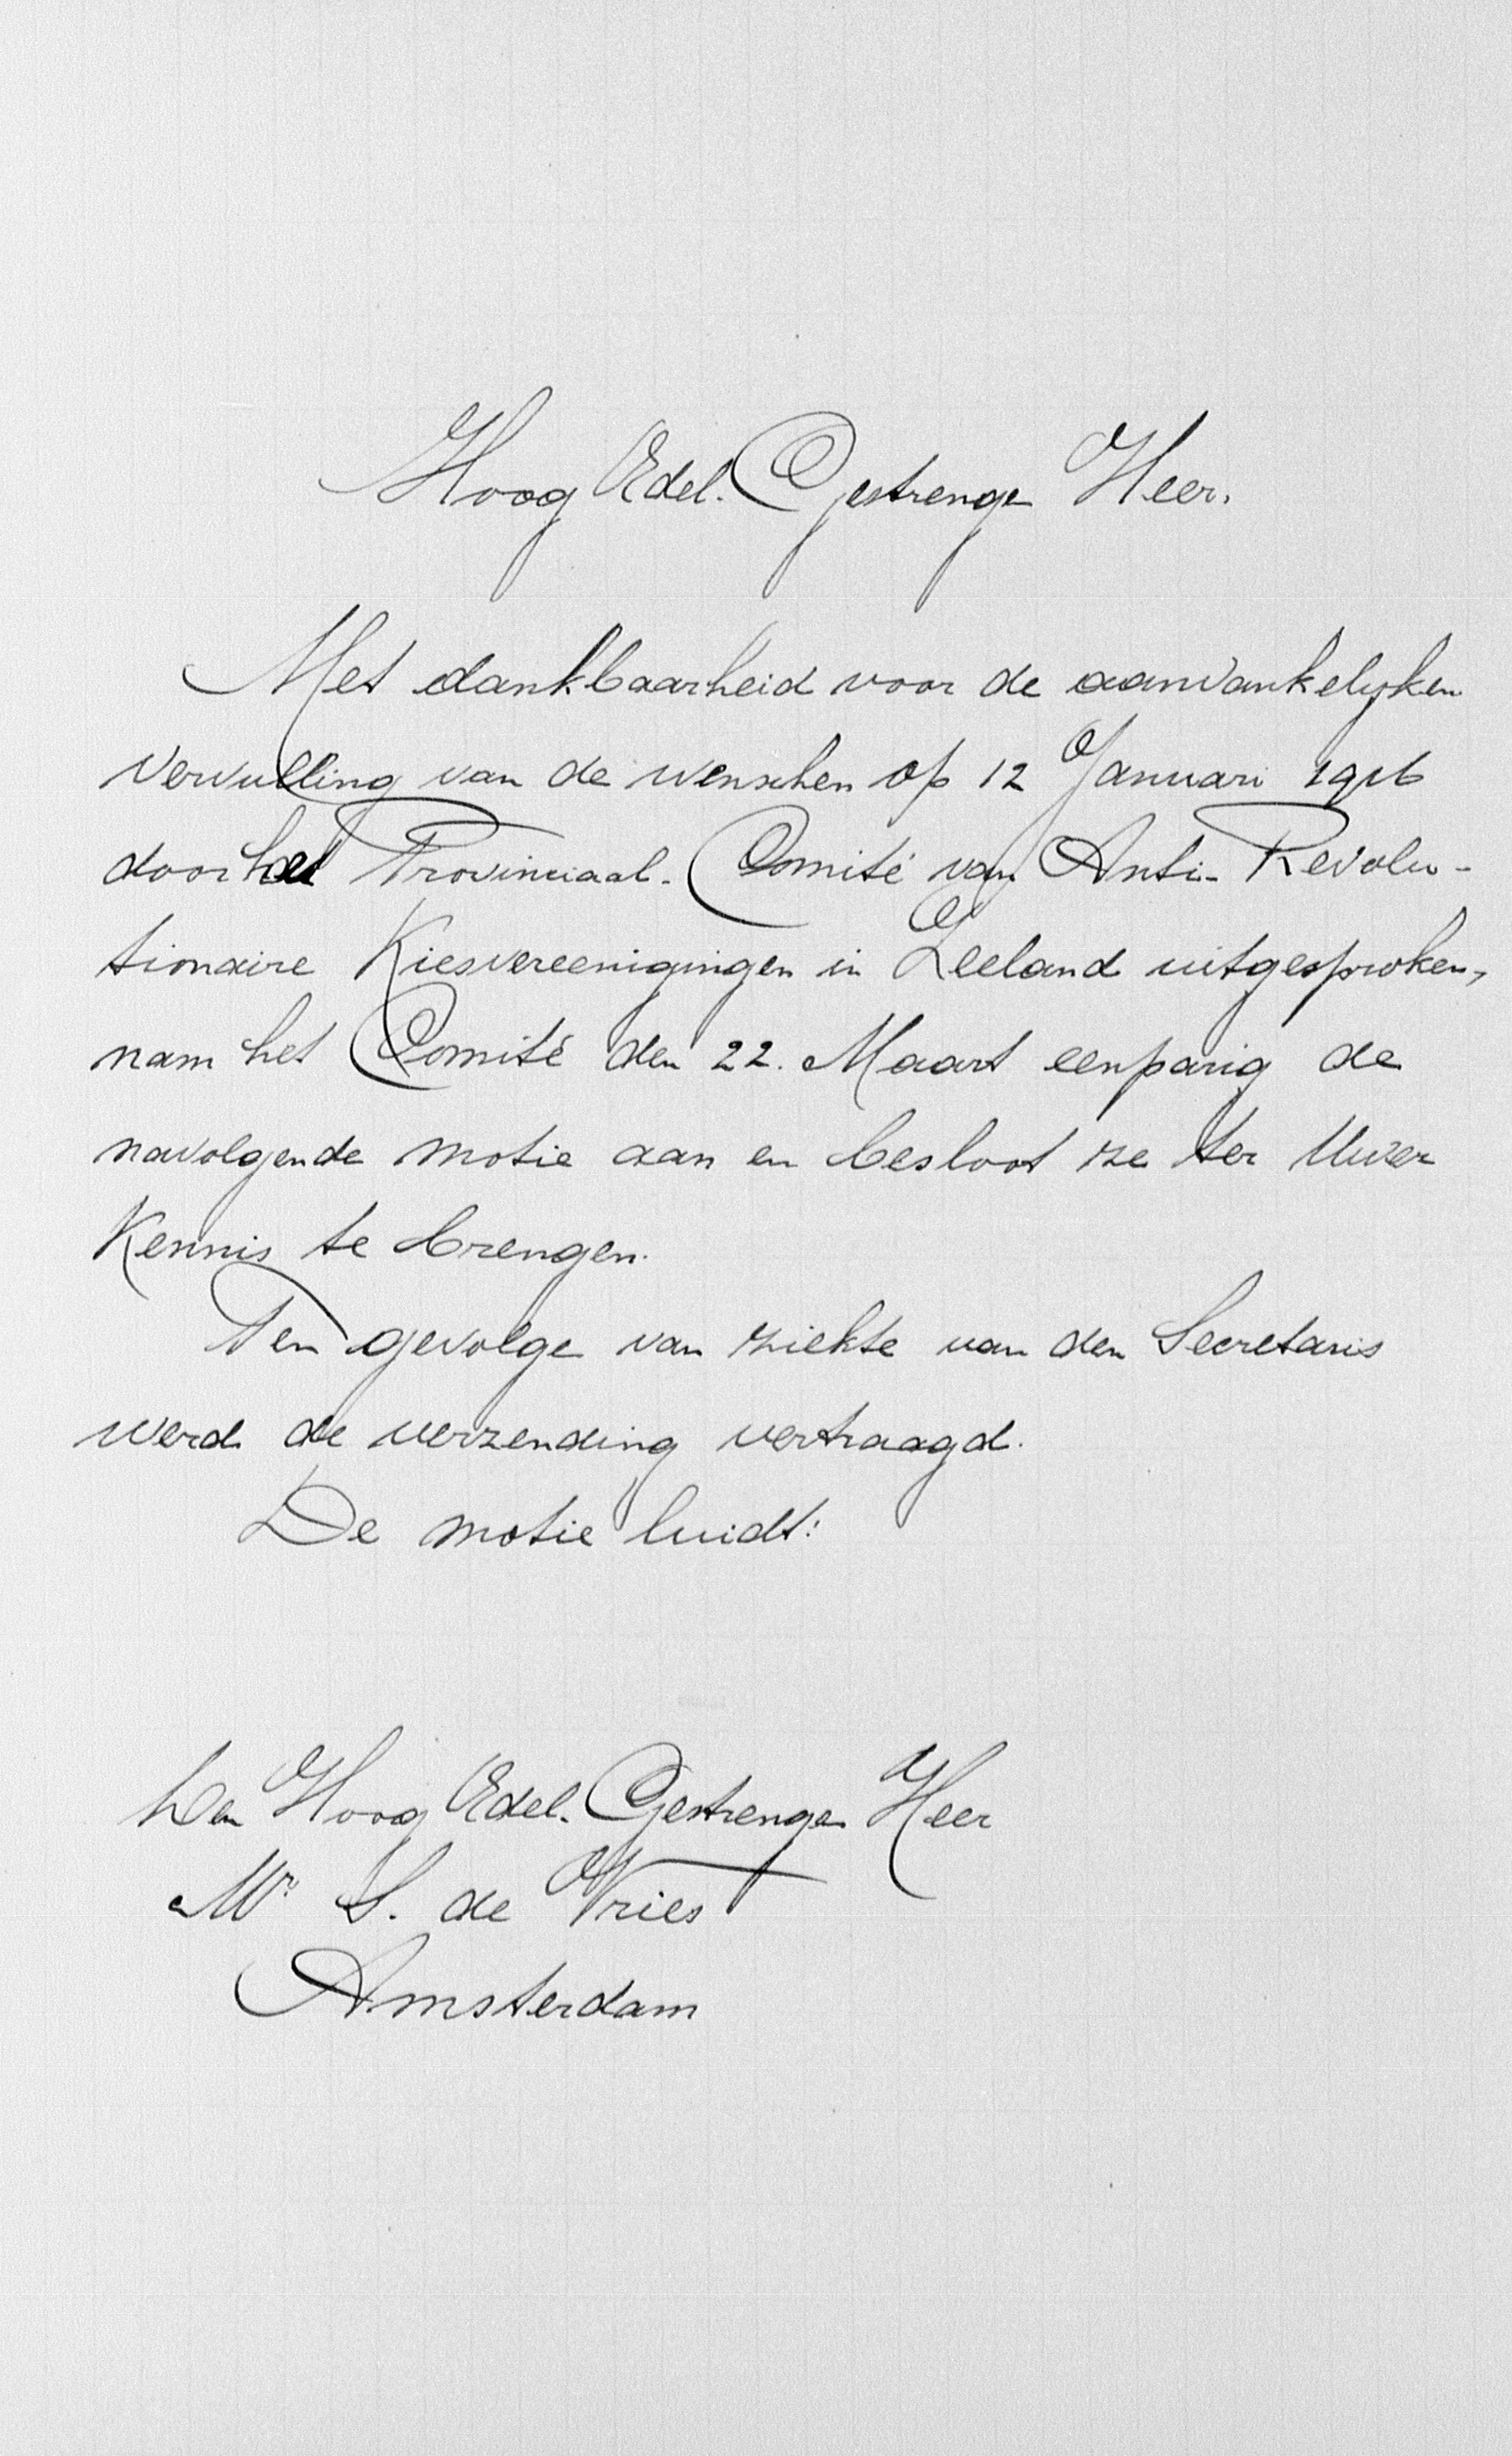 Hoog Edel. Gestrenge Heer.
Met dankbaarheid voor de aanvankelijken
vervulling van de wenschen op 12 Januari 1916
door het Provinciaal. Comité van Anti-Revolu-
tionaire Kiesvereenigingen in Zeeland uitgesproken,
nam het Comité den 22. Maart eenparig de
navolgende motie aan en besloot ze ter Uwer
Kennis te brengen.
Ten gevolge van ziekte van den Secretaris
werd de verzending vertraagd.
De motie luidt:
Den Hoog Edel. Gestrengen Heer
Mr. S. de Vries
Amsterdam